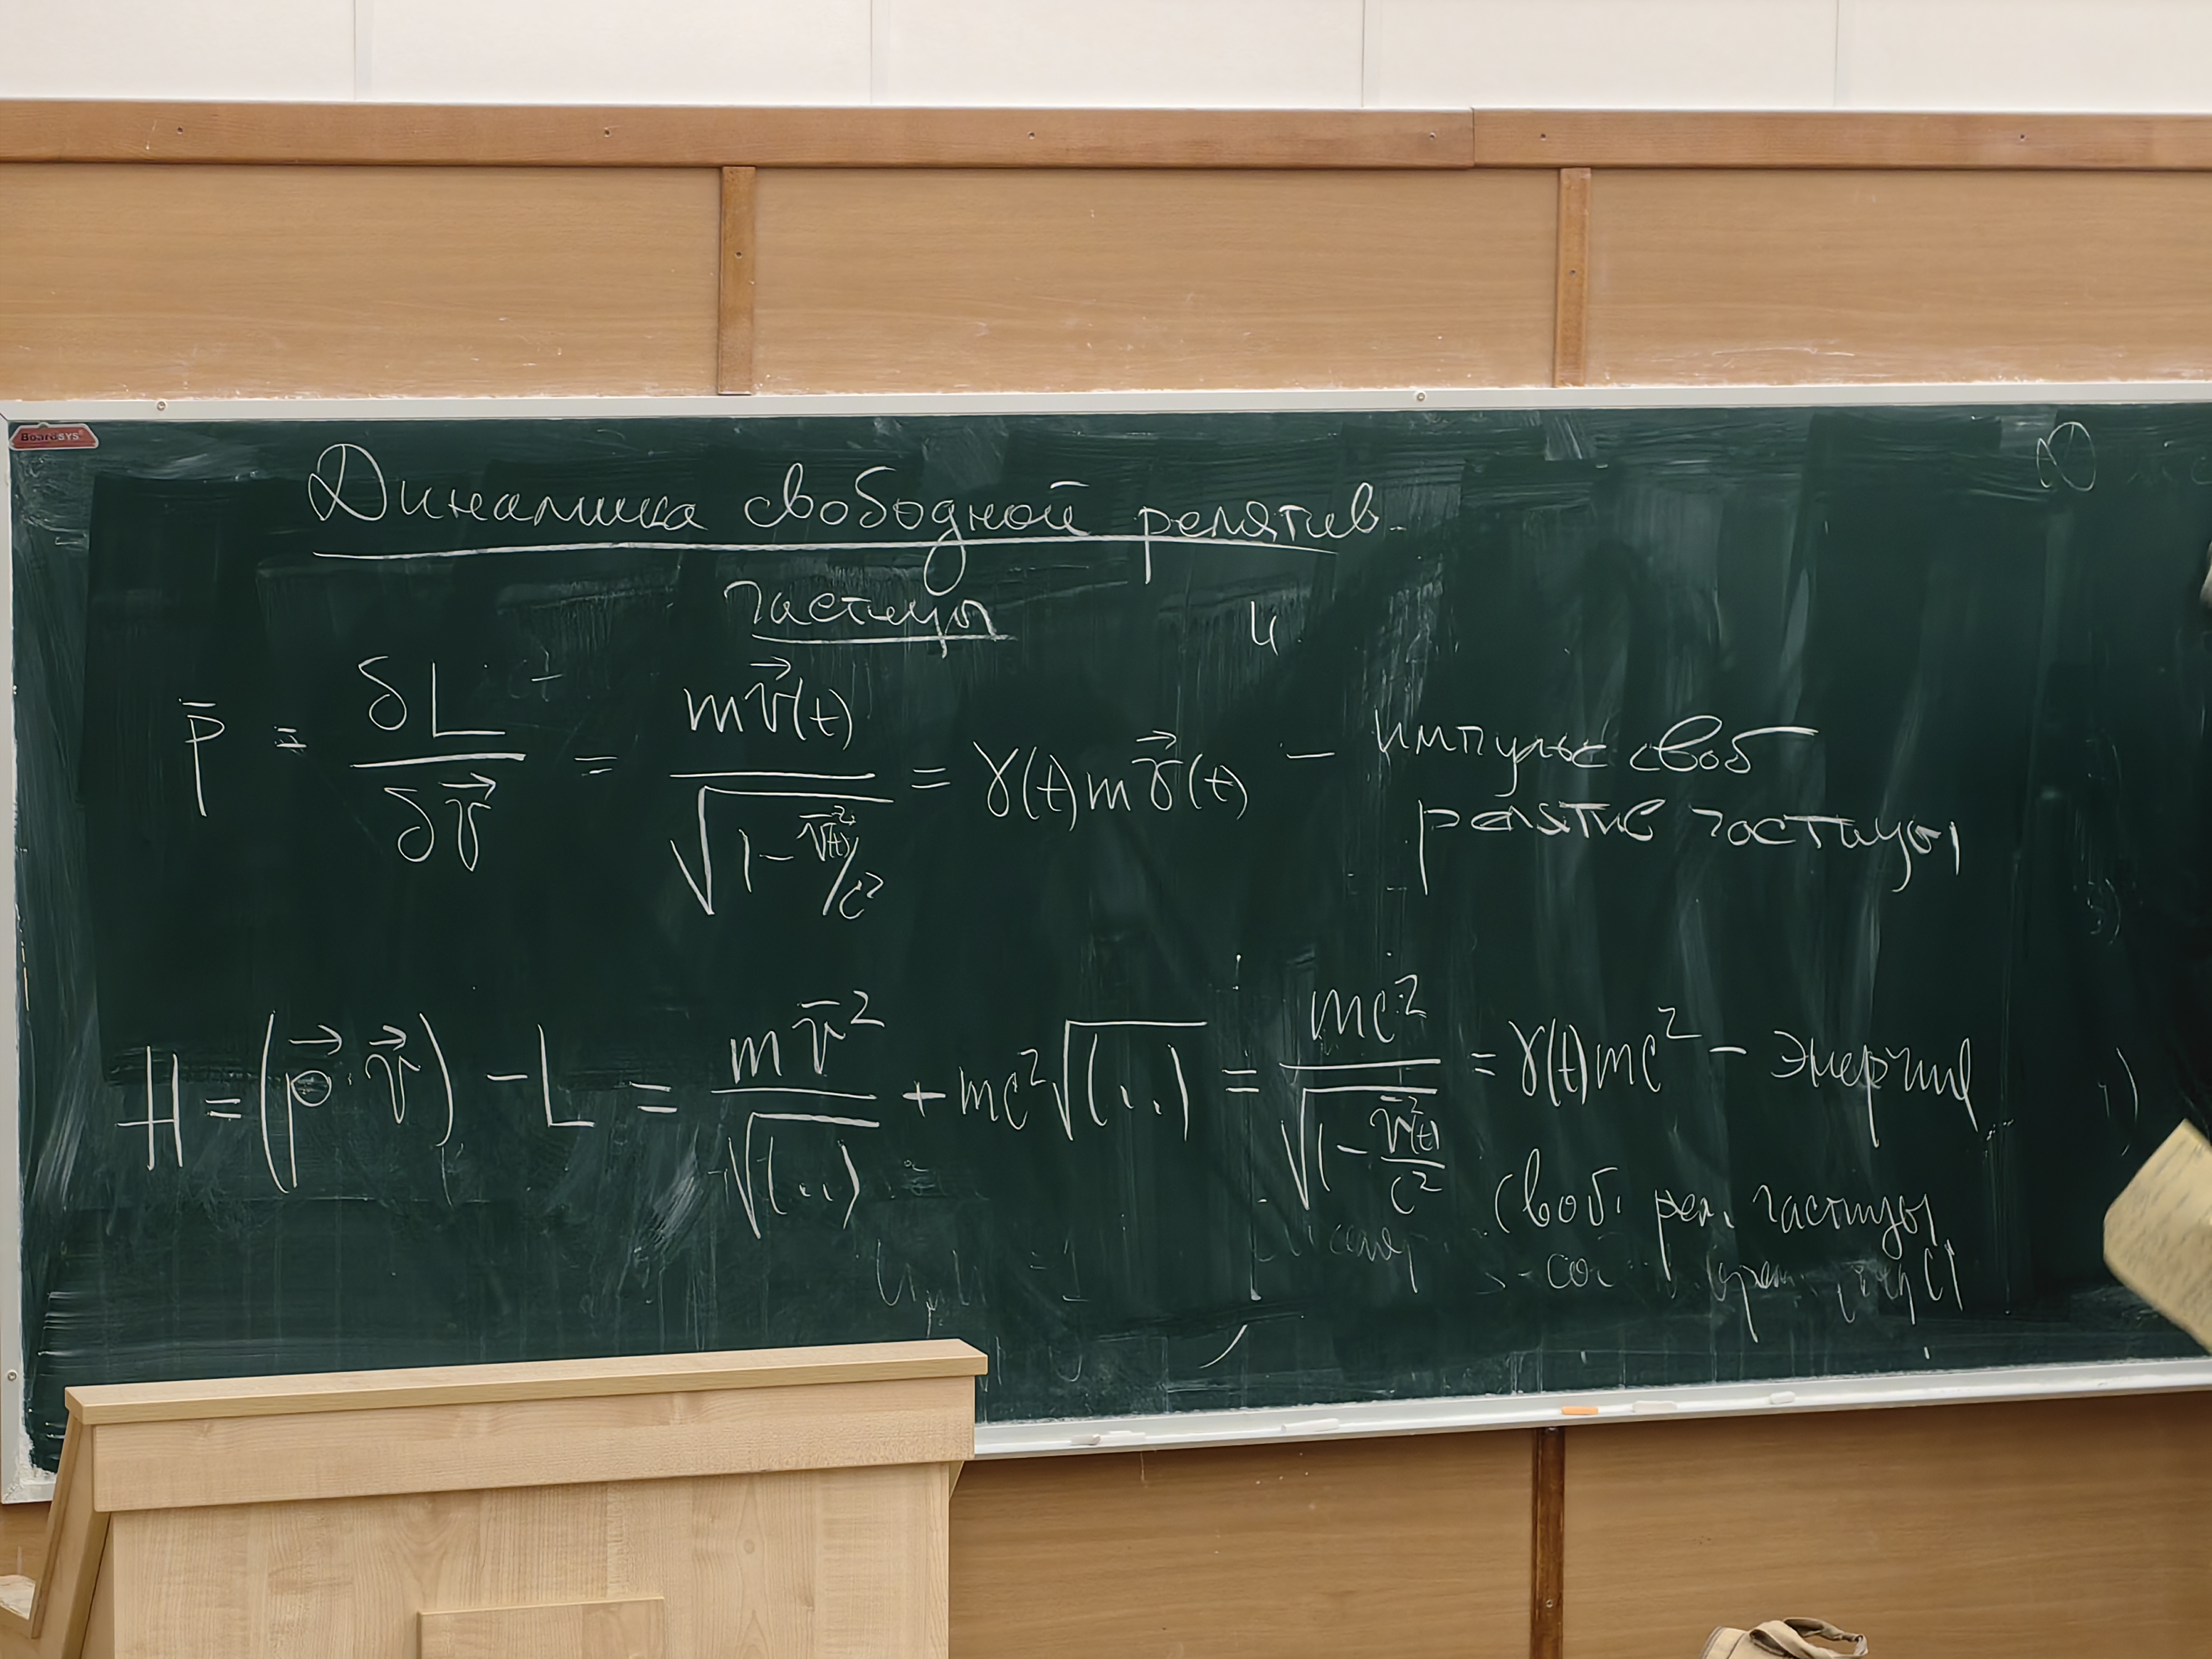 BoardSYS
Динамика свободной релятив-
частицы
p̄ = δL/δv⃗ = mv⃗(t)/√(1 - v̄(t)²/c²) = γ(t)mv⃗(t) - импульс своб
релятив частицы
H = (p⃗·v⃗) - L = mv̄²/√(..) + mc²√(..) = mc²/√(1 - v̄²(t)/c²) = γ(t)mc² - энергия
своб. рел. частицы